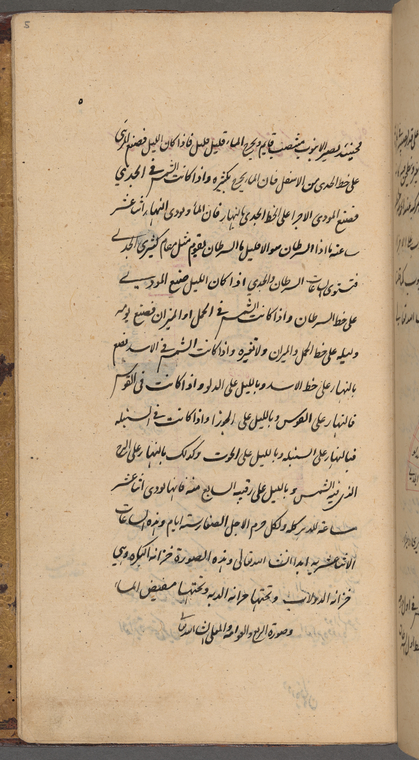 ٥
فحينئذ يصير الانبوب منتصب قايم ويخرج الماء قليل قليل فاذا كان الليل فضع المودى
على خط الجدى من الاسفل فان الما يخرج بكثره واذا كانت الشمس فى الجدى
فضع المودى الاجر اعلى الخط الجدى بالنهار فان الما يودى النهار اثنا عشر
ساعه اذا السرطان الما قليل بالسرطان يقوم مثل مقام كثير فى الجدى
فتستوى الساعات السرطان والجدى اذا كان الليل ضع المودى
على خط السرطان واذا كانت الشمس فى الحمل او الميزان فضع يومه
وليله على خط الحمل والميزان ولا تغيره واذا كانت الشمس فى الاسد يضع
بالنهار على خط الاسد وبالليل على الدلو واذا كانت فى القوس
فالنهار على القوس وبالليل على الجوزا واذا كانت فى السنبله
فبالنهار على السنبله وبالليل على الحوت وكذلك بالنهار على البرج
الذى فيه الشمس وبالليل على رقيبه السابع منه فانها تودى اثنا عشر
ساعه للدهر كله ولكل جرم الاجل الصفا سته ايام وهذه الساعات
الاثنا عشريه ابدا ان شا الله تعالى وهذه الصورة خزانة البكره وهى
خزانه الدولاب وتحتها خزانه الدبه وتحتها مفيض الما
وصورة الربع ان شا الله